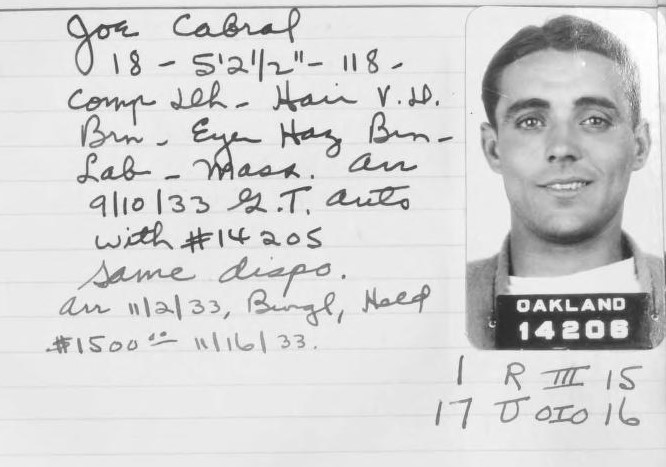 Joe Cabral
18 - 5'2 1/2" - 118 -
Comp Dk - Hair V.D.
Brn - Eyes Haz Brn -
Lab - Mass. arr
9/10/33 G.T. auto
with #14205
same dispo.
arr 11/2/33, Burgl, Held
$1500.00 11/16/33.
OAKLAND
14206
1 R III 15
17 U OIO 16